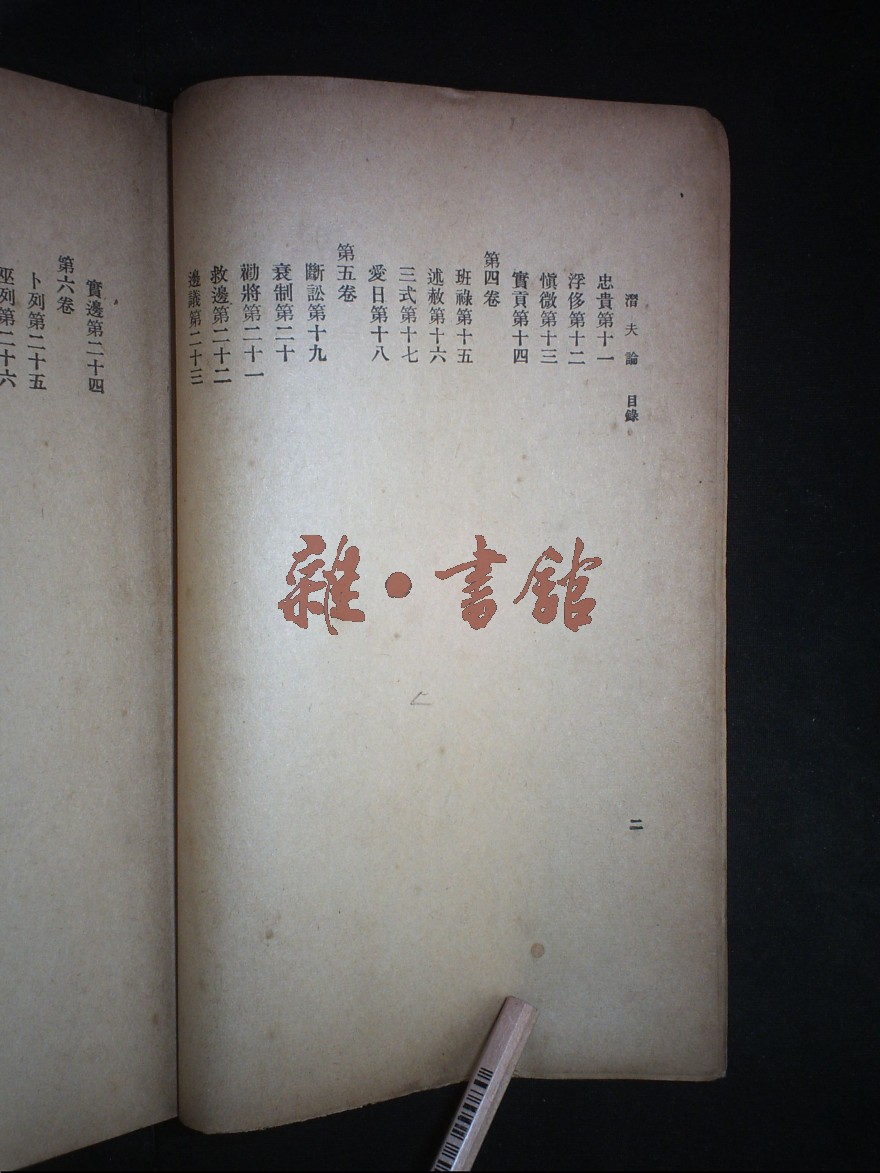 潛夫論 目錄
忠貴第十一
浮侈第十二
愼微第十三
實貢第十四
第四卷
班祿第十五
述赦第十六
三式第十七
愛日第十八
第五卷
斷訟第十九
衰制第二十
勸將第二十一
救邊第二十二
邊議第二十三
二
實邊第二十四
第六卷
卜列第二十五
巫列第二十六
雜·書館